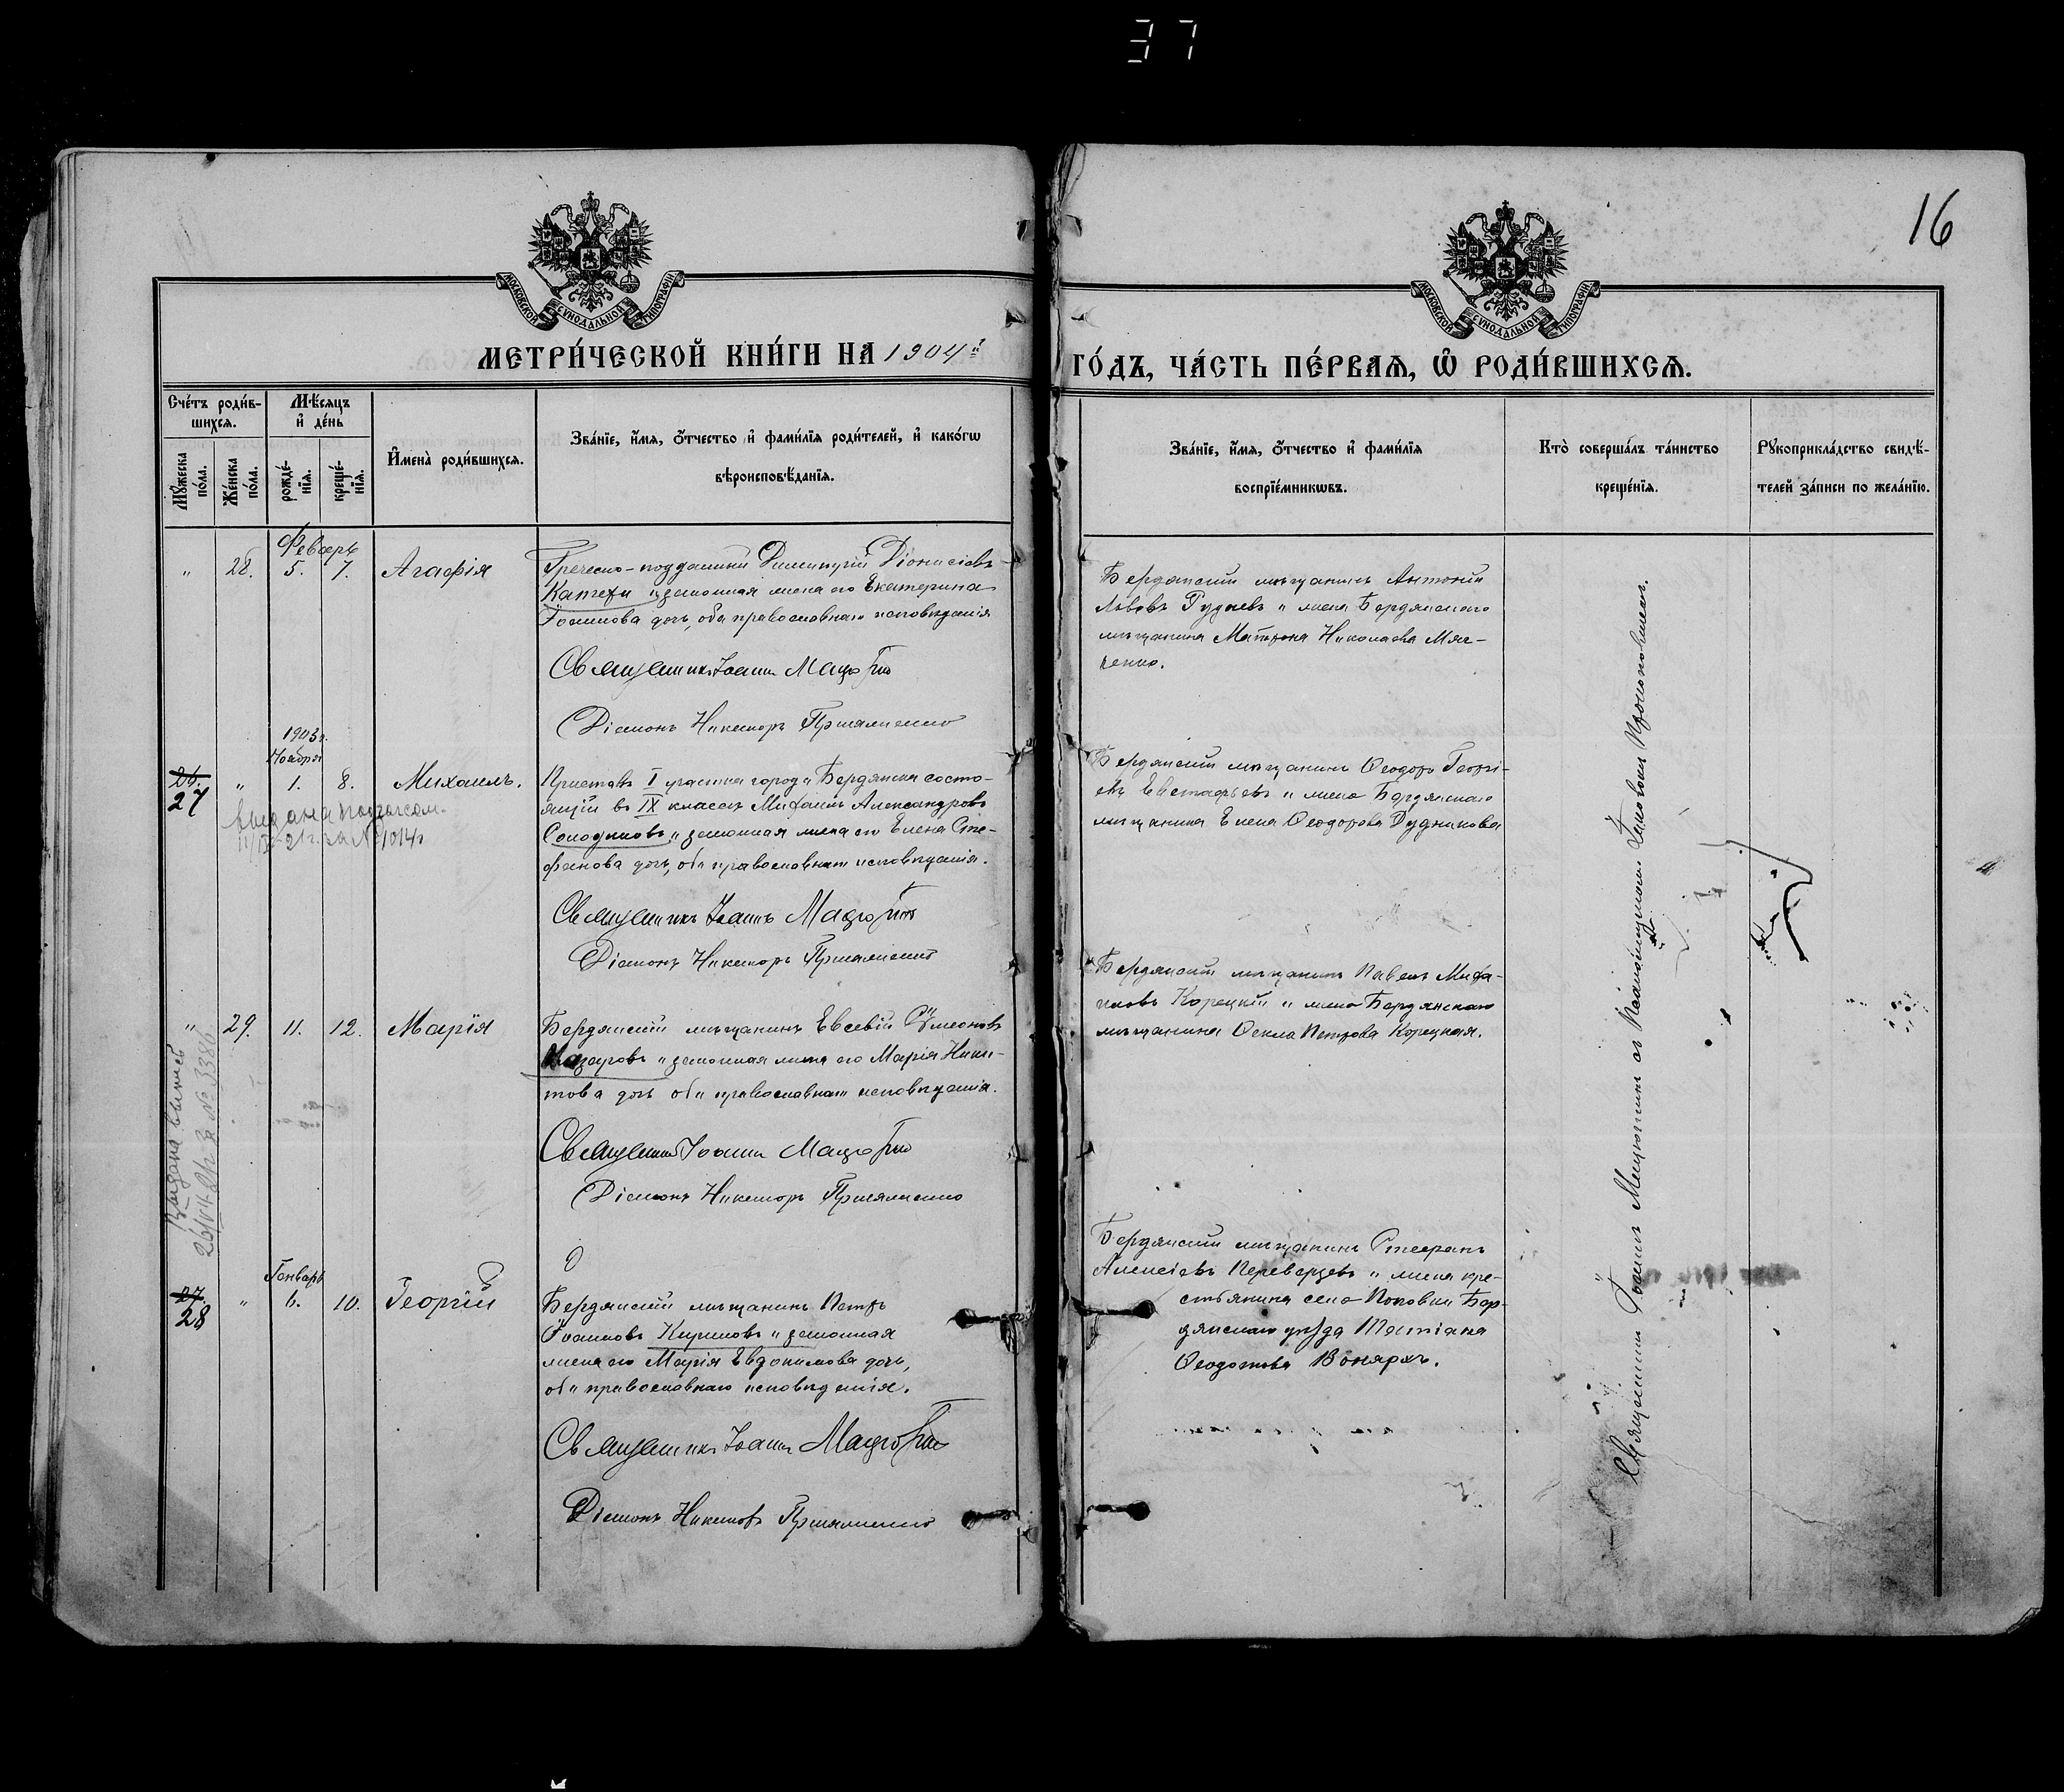 37
16
МОСКОВСКОЙ СѴНОДАЛЬНОЙ ТИПОГРАФІИ
МОСКОВСКОЙ СѴНОДАЛЬНОЙ ТИПОГРАФІИ
МЕТРИ́ЧЕСКОЙ КНИ́ГИ НА 1904й
ГО́ДЪ, ЧА́СТЬ ПЕ́РВАѦ, Ѡ҆ РОДИ́ВШИХСѦ.
Сче́тъ роди́в-
шихсѧ.
Мꙋ́жеска по́ла.
Же́нска по́ла.
Мѣ́сѧцъ
и҆ де́нь
рожде́-
нїѧ.
креще́-
нїѧ.
И҆мена̀ роди́вшихсѧ.
Зва́нїе, и҆́мѧ, ѻ҆́тчество и҆ фами́лїѧ роди́телей, и҆ како́гѡ
вѣроисповѣ́данїѧ.
Зва́нїе, и҆́мѧ, ѻ҆́тчество и҆ фами́лїѧ
воспрїе́мникѡвъ.
Кто̀ соверша́лъ та́инство
креще́нїѧ.
Рꙋкоприкла́дство свидѣ́-
телей за́писи по жела́нїю.
Февраль
" 28. 5. 7. Агафія
Греческо-подданный Димитрій Діонисіевъ
законная жена его Екатерина
Іоаннова дочь, оба православнаго исповѣданія
Священникъ Іоаннъ
Діаконъ Никифоръ
Бердянскій мѣщанинъ Антоній
Львовъ и жена Бердянскаго
мѣщанина Матрона Николаева
1903г.
Ноября
26.
27 " 1. 8. Михаилъ.
Приставъ I участка города Бердянска состо-
ящій въ IX классѣ Михаилъ Александровъ
Солодиловъ и законная жена его Елена Сте-
фанова дочь, оба православнаго исповѣданія.
Священникъ Іоаннъ
Діаконъ Никифоръ
Бердянскій мѣщанинъ Ѳеодоръ Георгі-
евъ Евстафьевъ и жена Бердянскаго
мѣщанина Елена Ѳеодорова Рудникова
" 29. 11. 12. Марія
Бердянскій мѣщанинъ Евсевій Сѵмеоновъ
и законная жена его Марія Ники-
това дочь оба православнаго исповѣданія.
Священникъ Іоаннъ
Діаконъ Никифоръ
Выдана выпись
№ 3386
Бердянскій мѣщанинъ Павелъ Миха-
иловъ Корецкій и жена Бердянскаго
мѣщанина Ѳекла Петрова Корецкая.
Январь
27.
28 " 6. 10. Георгій
Бердянскій мѣщанинъ Петръ
Іоанновъ Кириловъ и законная
жена его Марія Евдокимова дочь,
оба православнаго исповѣданія.
Священникъ Іоаннъ
Діаконъ Никифоръ
Бердянскій мѣщанинъ Стефанъ
Алексіевъ Переверзевъ и жена кре-
стьянина села Поповки Бер-
дянскаго уѣзда Татіана
Ѳеодотова
Священникъ Іоаннъ съ псаломщикомъ